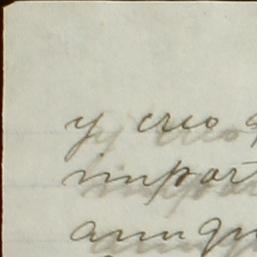 y creo
import
aunqu